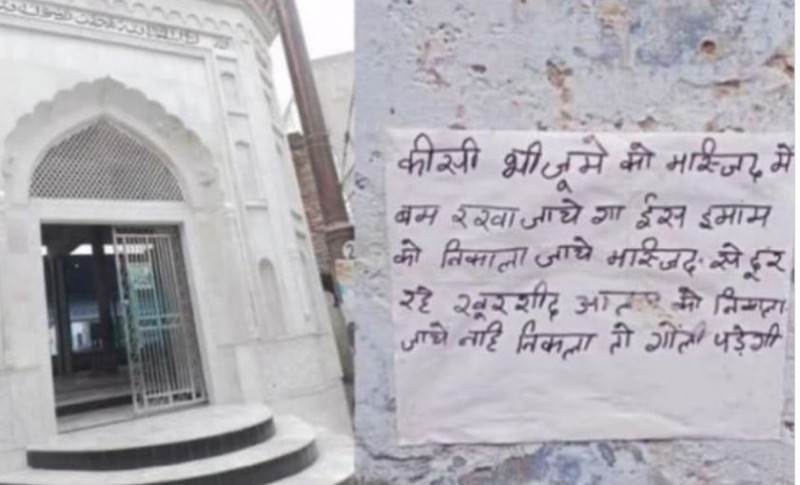 कीसी भी जूमे को मास्जिद में
बम रखा जाये गा ईस इमाम
को निकाला जाये मास्जिद से दूर
रहे खूरशीद को निकाला
जाये नहि निकला तो गोली पड़ेगी